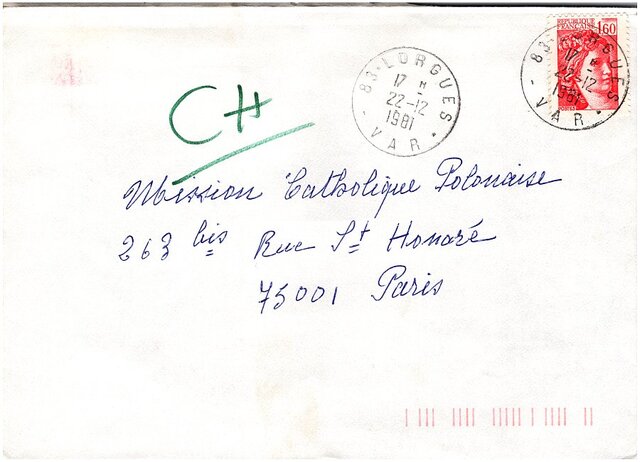 REPUBLIQUE
FRANCAISE 1,60
83-LORGUES
17 H
22-12
1981
- VAR -
83-LORGUES
17 H
22-12
1981
- VAR -
CH
Mission Catholique Polonaise
263 bis Rue St Honoré
75001 Paris